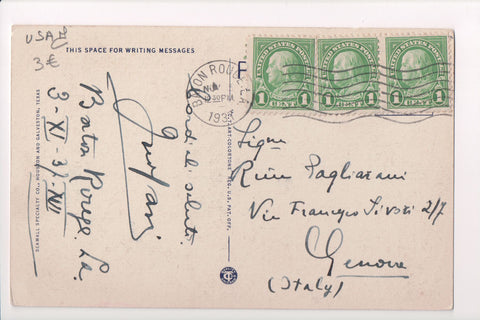 USA
3€
THIS SPACE FOR WRITING MESSAGES
Cordiali saluti
Baton Rouge. La.
3-XI-34-XII
SEAWALL SPECIALTY CO., HOUSTON AND GALVESTON, TEXAS
REG. U.S. PAT. OFF.
BATON ROUGE LA
NOV
PM
193
UNITED STATES POSTAGE
1 CENT 1
UNITED STATES POSTAGE
1 CENT 1
UNITED STATES POSTAGE
1 CENT 1
Sign.
Pagliarani
Via Francesco Sivori 2/7
Genova
(Italy)